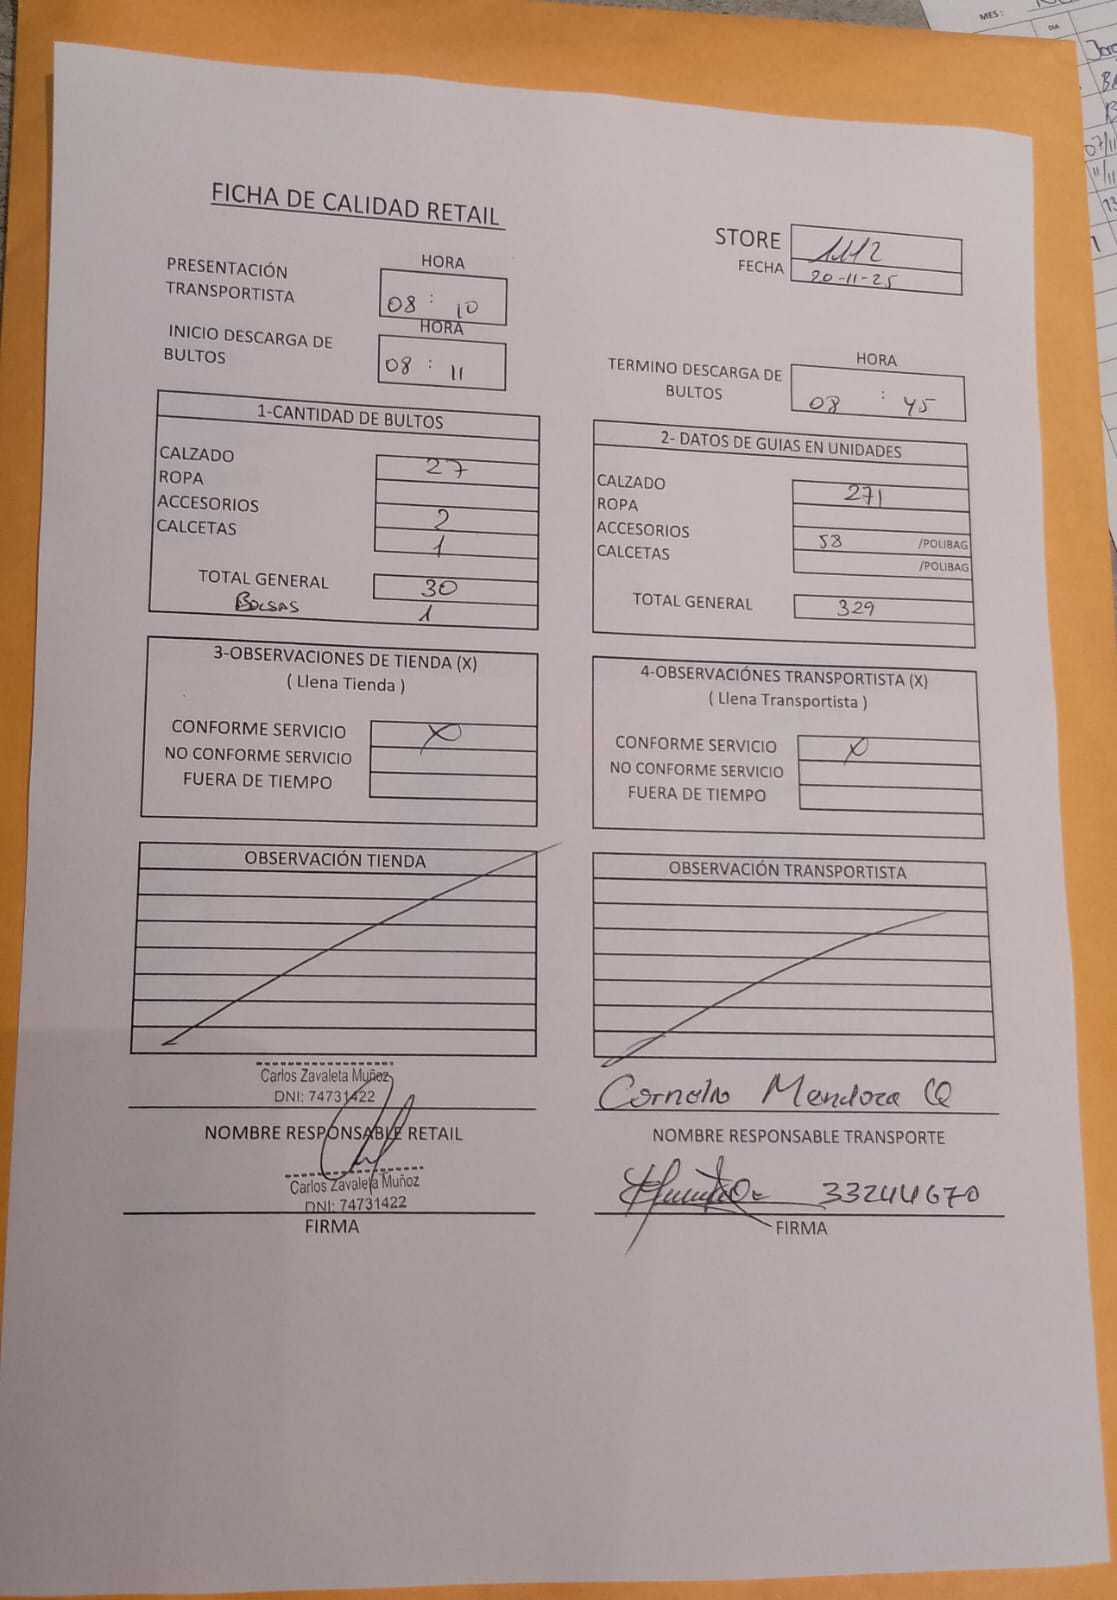 MES :
DIA
FICHA DE CALIDAD RETAIL
STORE 1112
FECHA 20-11-25
PRESENTACIÓN TRANSPORTISTA
HORA
08 : 10
INICIO DESCARGA DE BULTOS
HORA
08 : 11
TERMINO DESCARGA DE BULTOS
HORA
08 : 45
1-CANTIDAD DE BULTOS
CALZADO 27
ROPA
ACCESORIOS 2
CALCETAS 1
TOTAL GENERAL 30
Bolsas 1
2- DATOS DE GUIAS EN UNIDADES
CALZADO 271
ROPA
ACCESORIOS 58 /POLIBAG
CALCETAS /POLIBAG
TOTAL GENERAL 329
3-OBSERVACIONES DE TIENDA (X)
( Llena Tienda )
CONFORME SERVICIO X
NO CONFORME SERVICIO
FUERA DE TIEMPO
4-OBSERVACIÓNES TRANSPORTISTA (X)
( Llena Transportista )
CONFORME SERVICIO X
NO CONFORME SERVICIO
FUERA DE TIEMPO
OBSERVACIÓN TIENDA
OBSERVACIÓN TRANSPORTISTA
Carlos Zavaleta Muñoz
DNI: 74731422
NOMBRE RESPONSABLE RETAIL
Carlos Zavaleta Muñoz
DNI: 74731422
FIRMA
Cornelio Mendoza Q
NOMBRE RESPONSABLE TRANSPORTE
33244670
FIRMA